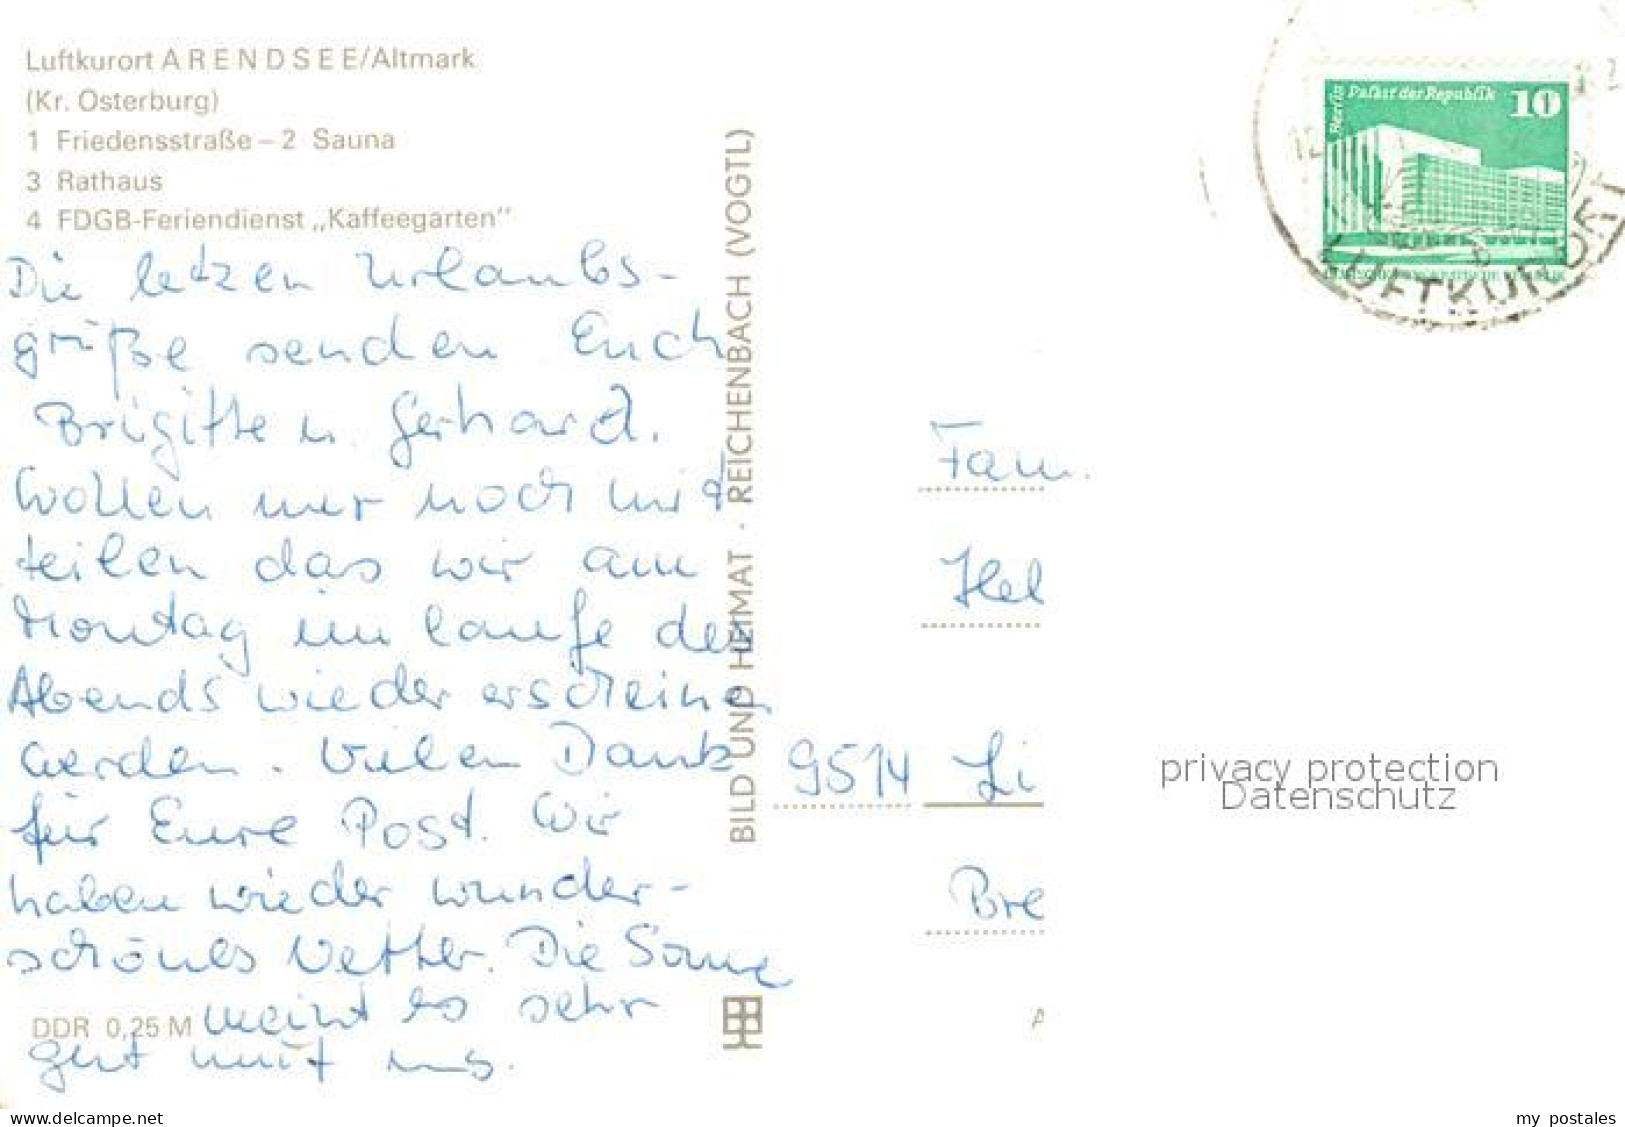 Luftkurort ARENDSEE/Altmark
(Kr. Osterburg)
1 Friedensstraße – 2 Sauna
3 Rathaus
4 FDGB-Feriendienst „Kaffeegarten"
Die letzen Urlaubs-
grüße senden Euch
Brigitte u. Gerhard.
Wollen nur noch mit
teilen das wir am
Montag im laufe des
Abends wieder erscheinen
werden. Vielen Dank
für Eure Post. Wir
haben wieder wunder-
schönes Wetter. Die Sonne
meint es sehr
gut mit uns.
DDR 0,25 M
BILD UND HEIMAT · REICHENBACH (VOGTL)
Berlin Palast der Republik 10
LUFTKURORT
Fam.
Hel
9514 Li
Bre
A
privacy protection
Datenschutz
delcampe.net
my_postales